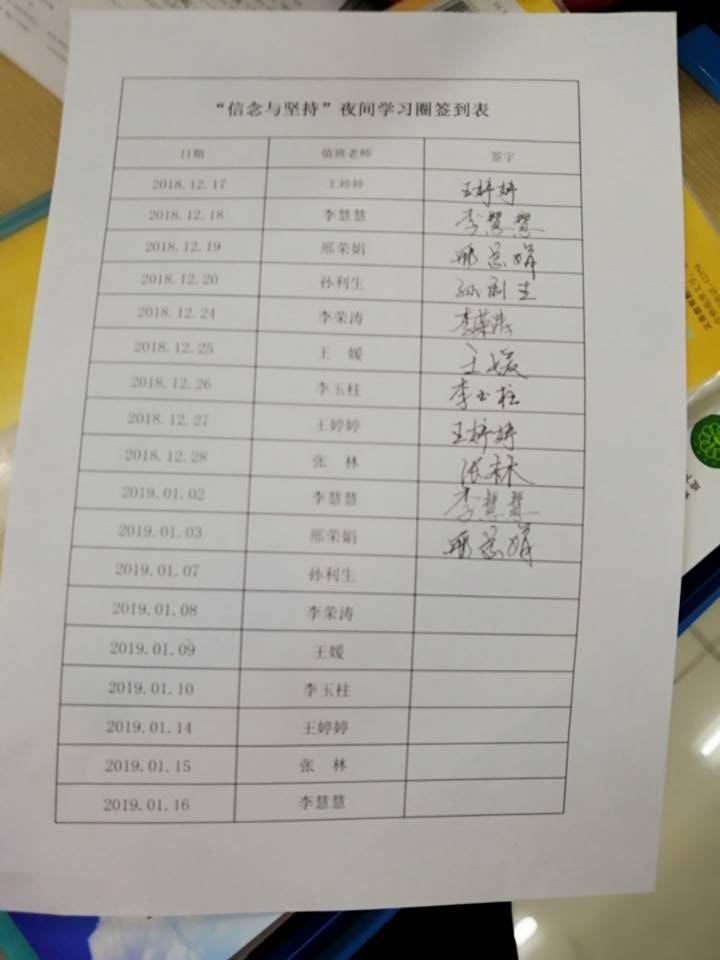 “信念与坚持”夜间学习圈签到表
日期 值班老师 签字
2018.12.17 王婷婷 王婷婷
2018.12.18 李慧慧 李慧慧
2018.12.19 邢荣娟 邢荣娟
2018.12.20 孙利生 孙利生
2018.12.24 李荣涛 李荣涛
2018.12.25 王 媛 王媛
2018.12.26 李玉柱 李玉柱
2018.12.27 王婷婷 王婷婷
2018.12.28 张 林 张林
2019.01.02 李慧慧 李慧慧
2019.01.03 邢荣娟 邢荣娟
2019.01.07 孙利生
2019.01.08 李荣涛
2019.01.09 王媛
2019.01.10 李玉柱
2019.01.14 王婷婷
2019.01.15 张 林
2019.01.16 李慧慧